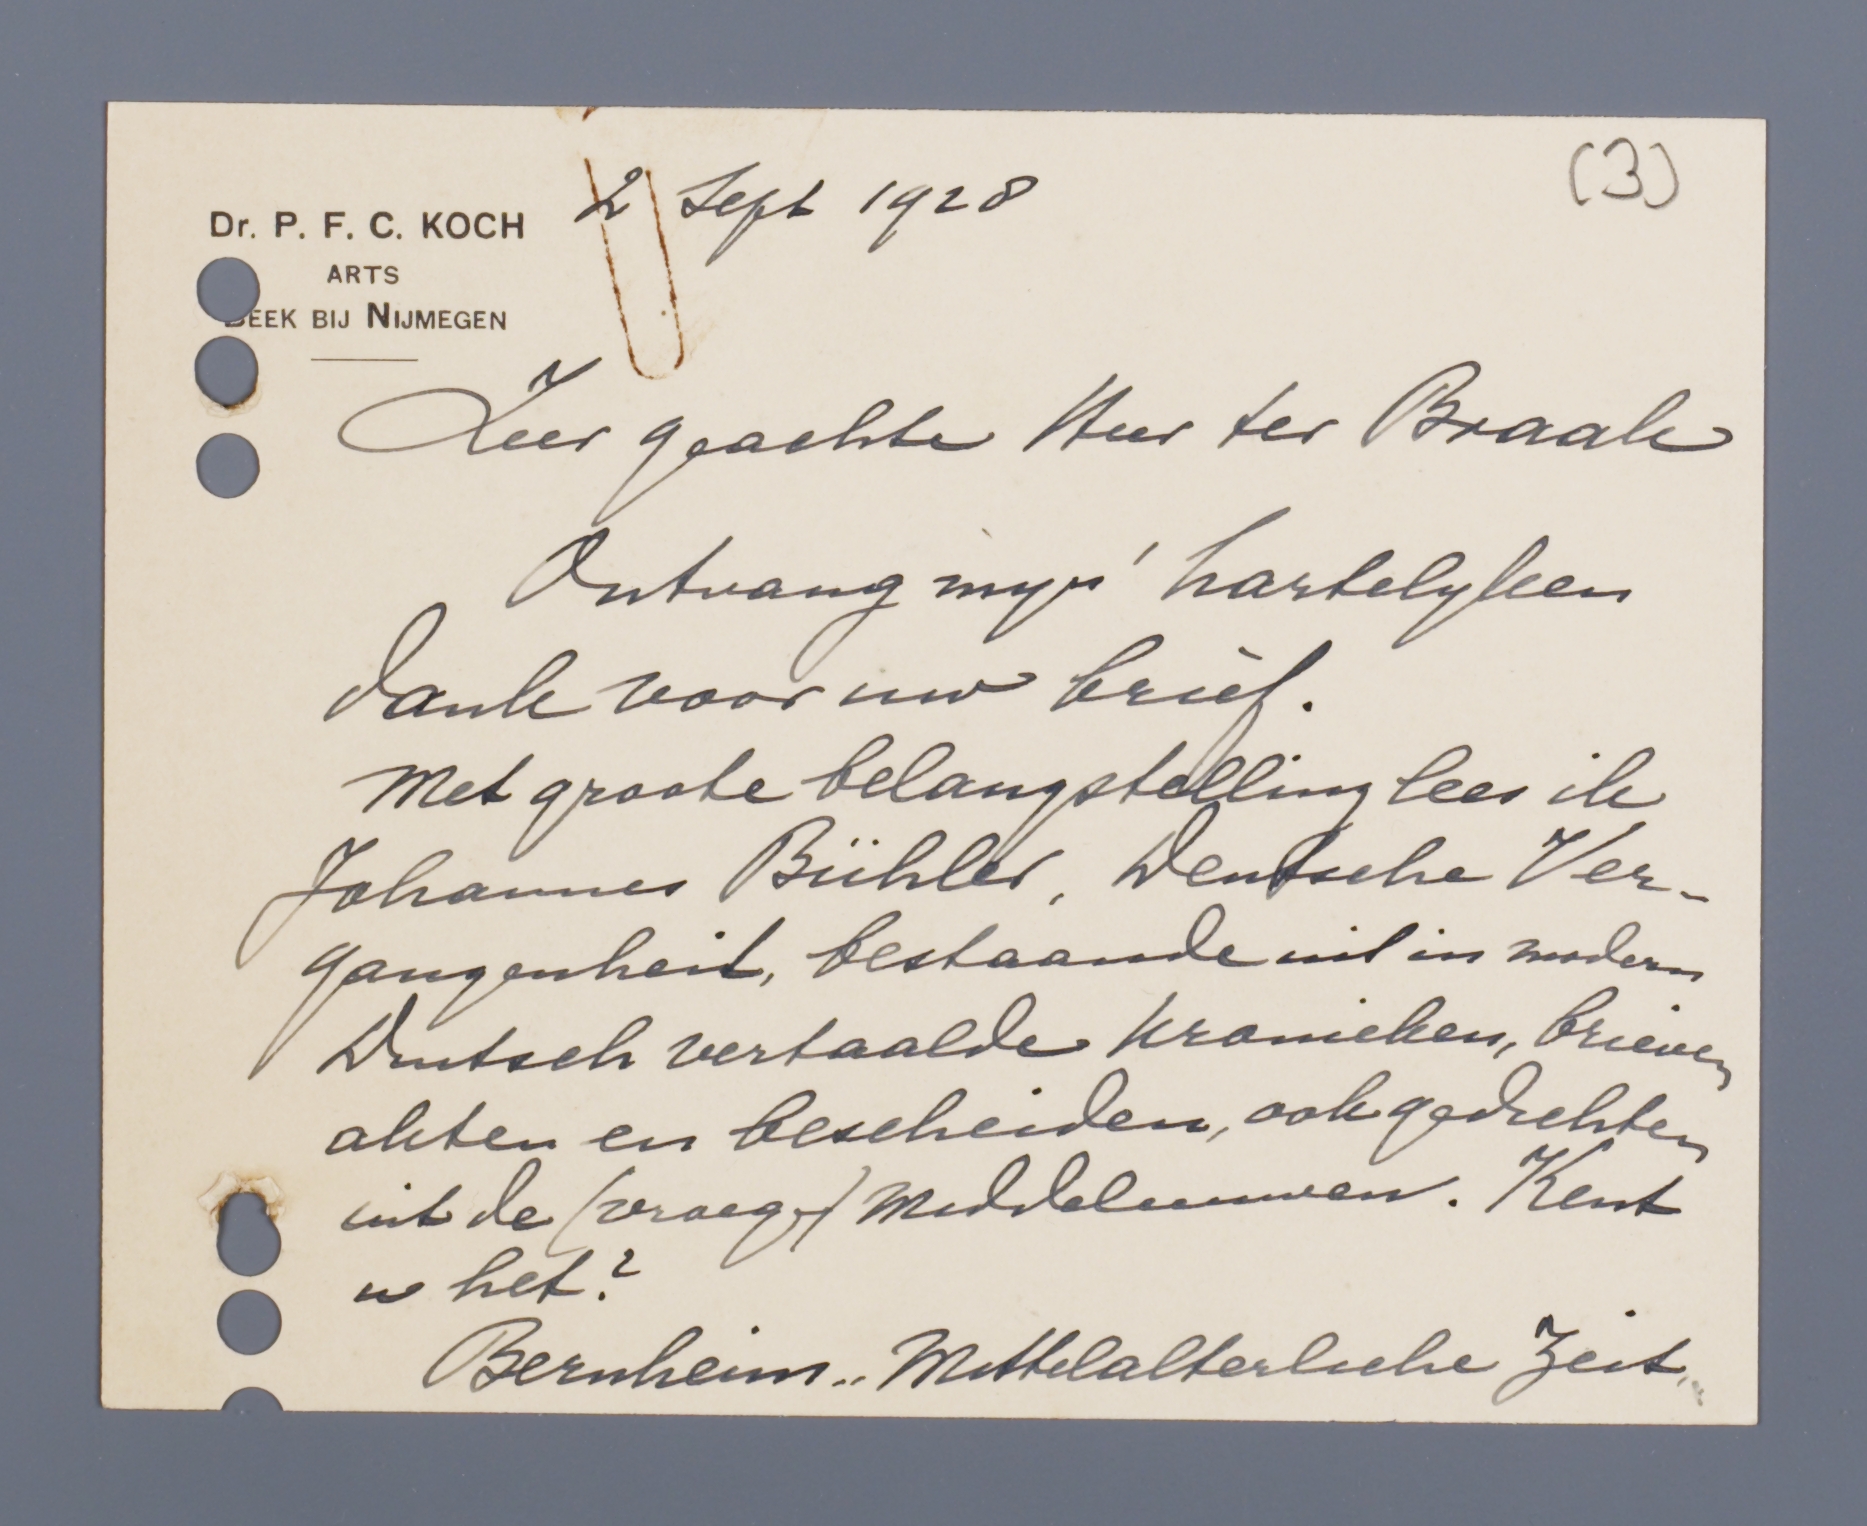 (3)
2 Sept 1928
Dr. P. F. C. KOCH
ARTS
BEEK BIJ NIJMEGEN
Zeer geachte Heer ter Braak
Ontvang myn hartelyken
dank voor uw brief.
Met groote belangstelling lees ik
Johannes Bühler, Deutsche Ver-
gangenheit, bestaande uit in modern
Deutsch vertaalde kronieken, brieven
akten en bescheiden, ook gedichten
uit de (vroege) Middeleeuwen. Kent
u het?
Bernheim „Mittelalterliche Zeit